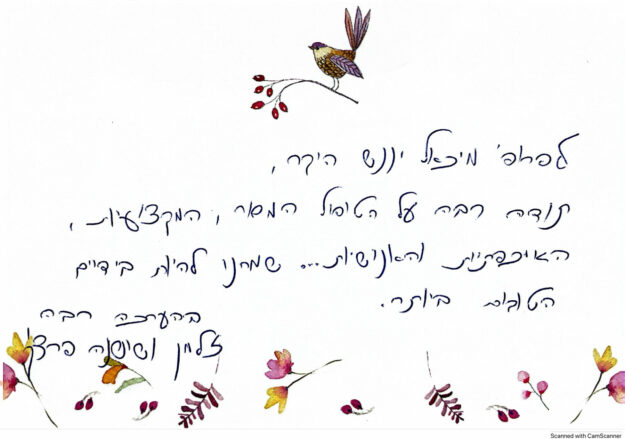 לפרופ' מיכאל יננש היקר,
תודה רבה על הטיפול המסור, המקצועיות,
האיכפתיות והאנושיות... שמחנו להיות בידיים
הטובים ביותר.
בהערכה רבה
זלמן ושושנה פרץ
Scanned with CamScanner